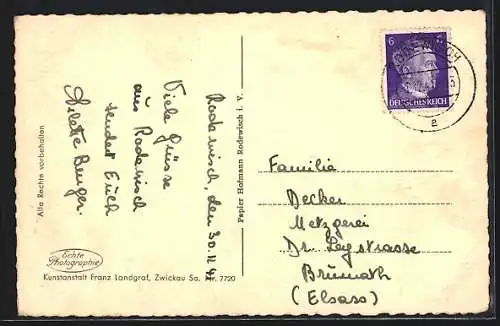 Rodewisch, den 30.11.42
Viele Grüsse
aus Rodewisch
sendet Euch
Berger.
Alle Rechte vorbehalten
Echte
Photographie
Kunstanstalt Franz Landgraf, Zwickau Sa. Nr. 7720
Papier Hofmann Rodewisch i. V.
6 6
DEUTSCHES REICH
e
Familia
Decker
Metzgerei
Dr Leystrasse
Brumath
(Elsass)